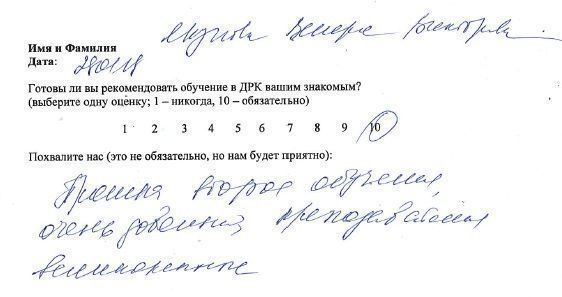 Якупова Венера Викторовна
Имя и Фамилия
Дата: 280118
Готовы ли вы рекомендовать обучение в ДРК вашим знакомым?
(выберите одну оценку; 1 – никогда, 10 – обязательно)
1 2 3 4 5 6 7 8 9 10
Похвалите нас (это не обязательно, но нам будет приятно):
Прошла второе обучение,
очень довольна, преподаватели
великолепные